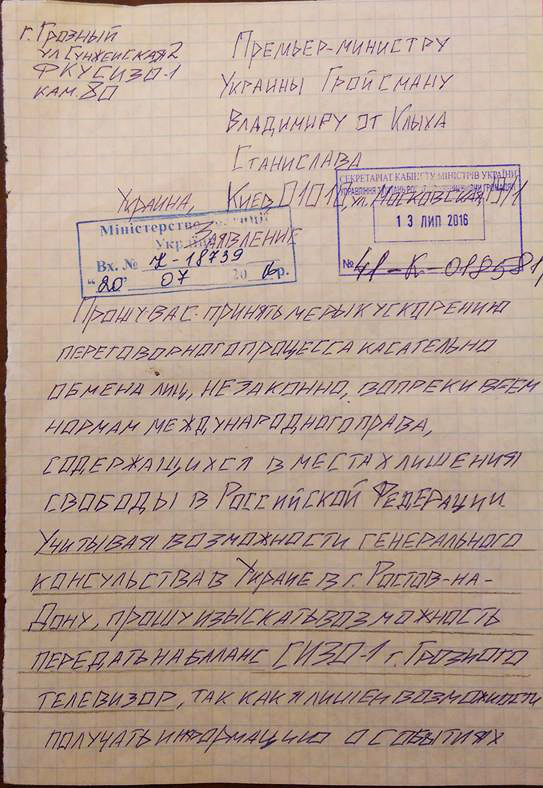 г. Грозный
ул Сунженская 2
ФКУ СИЗО-1
кам. 80
Премьер-министру
Украины Гройсману
Владимиру от Клыха
Станислава
Украина, Киев 01010, ул. Московская
Заявление
Міністерство юстиції
України
Вх. № К-18739
"20" 07 20 р.
СЕКРЕТАРІАТ КАБІНЕТУ МІНІСТРІВ УКРАЇНИ
13 ЛИП 2016
№ 41-К-018581
Прошу вас принять меры к ускорению
переговорного процесса касательно
обмена лиц, незаконно, вопреки всем
нормам международного права,
содержащихся в местах лишения
свободы в Российской Федерации
Учитывая возможности генерального
консульства в Украие в г. Ростов-на-
Дону, прошу изыскать возможность
передать на баланс СИЗО-1 г. Грозного
телевизор, так как я лишен возможности
получать информацию о событиях